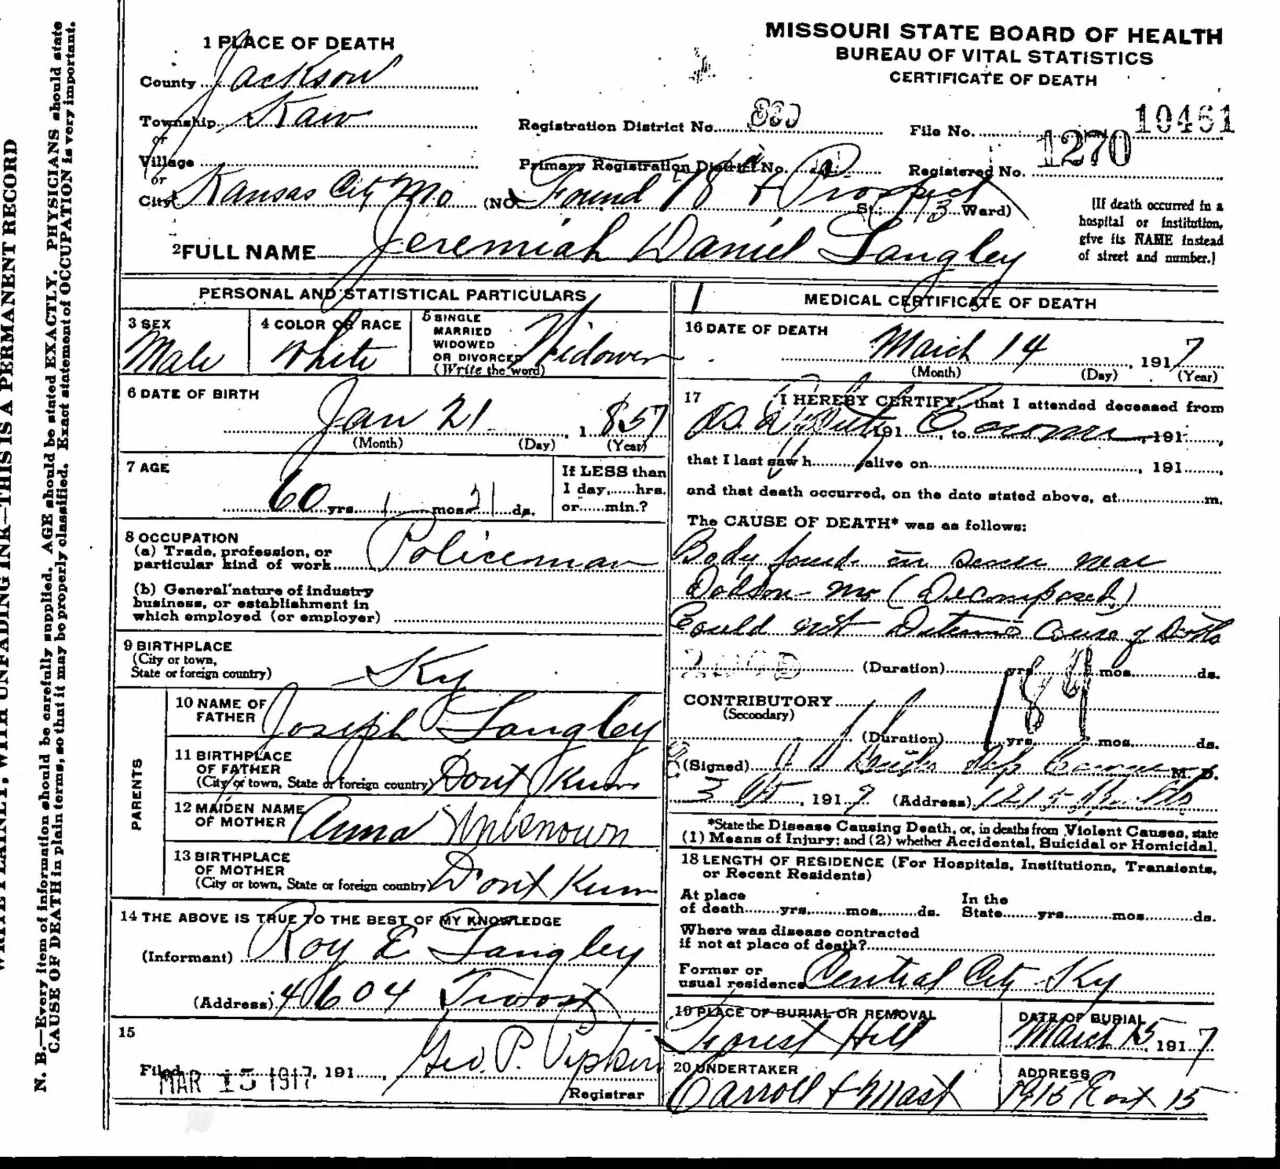 MISSOURI STATE BOARD OF HEALTH
BUREAU OF VITAL STATISTICS
CERTIFICATE OF DEATH
1 PLACE OF DEATH
County Jackson
Township Kaw
or
Village
or
City Kansas City Mo (NO. Found 78 & Prospect St. 13 Ward)
Registration District No.
File No. 10461
Primary Registration District No.
Registered No. 1270
[If death occurred in a
hospital or institution,
give its NAME instead
of street and number.]
2 FULL NAME Jeremiah Daniel Langley
PERSONAL AND STATISTICAL PARTICULARS
3 SEX
Male
4 COLOR OR RACE
White
5 SINGLE
MARRIED
WIDOWED
OR DIVORCED
(Write the word)
Widower
6 DATE OF BIRTH
Jan 21, 1857
(Month) (Day) (Year)
7 AGE
60 yrs. 1 mos. 21 ds.
If LESS than
1 day,......hrs.
or......min.?
8 OCCUPATION
(a) Trade, profession, or
particular kind of work Policeman
(b) General nature of industry
business, or establishment in
which employed (or employer)
9 BIRTHPLACE
(City or town,
State or foreign country)
Ky
PARENTS
10 NAME OF
FATHER Joseph Langley
11 BIRTHPLACE
OF FATHER
(City or town, State or foreign country) Dont Know
12 MAIDEN NAME
OF MOTHER Anna Unknown
13 BIRTHPLACE
OF MOTHER
(City or town, State or foreign country) Dont Know
14 THE ABOVE IS TRUE TO THE BEST OF MY KNOWLEDGE
(Informant) Roy E Langley
(Address) 4604 Troost
15
Filed MAR 15 1917, 191 Geo. P. Pipkin
Registrar
MEDICAL CERTIFICATE OF DEATH
16 DATE OF DEATH
March 14, 1917
(Month) (Day) (Year)
17 I HEREBY CERTIFY, that I attended deceased from
as Deputy, 191 , to Coroner, 191 ,
that I last saw h alive on , 191 ,
and that death occurred, on the date stated above, at m.
The CAUSE OF DEATH* was as follows:
Body found in near
Dodson Mo (Decomposed)
Could not Determine Cause of Death
(Duration) yrs. mos. ds.
CONTRIBUTORY
(Secondary)
189
(Duration) yrs. mos. ds.
(Signed) Dep Coroner M. D.
3 15, 1917 (Address) 1215
*State the Disease Causing Death, or, in deaths from Violent Causes, state
(1) Means of Injury; and (2) whether Accidental, Suicidal or Homicidal.
18 LENGTH OF RESIDENCE (For Hospitals, Institutions, Transients,
or Recent Residents)
At place
of death yrs. mos. ds.
In the
State yrs. mos. ds.
Where was disease contracted
if not at place of death?
Former or
usual residence Central City Ky
19 PLACE OF BURIAL OR REMOVAL
Forest Hill
DATE OF BURIAL
March 15, 1917
20 UNDERTAKER
Carroll & Mast
ADDRESS
1915 East 15
WRITE PLAINLY, WITH UNFADING INK—THIS IS A PERMANENT RECORD
N. B.—Every item of information should be carefully supplied. AGE should be stated EXACTLY. PHYSICIANS should state
CAUSE OF DEATH in plain terms, so that it may be properly classified. Exact statement of OCCUPATION is very important.